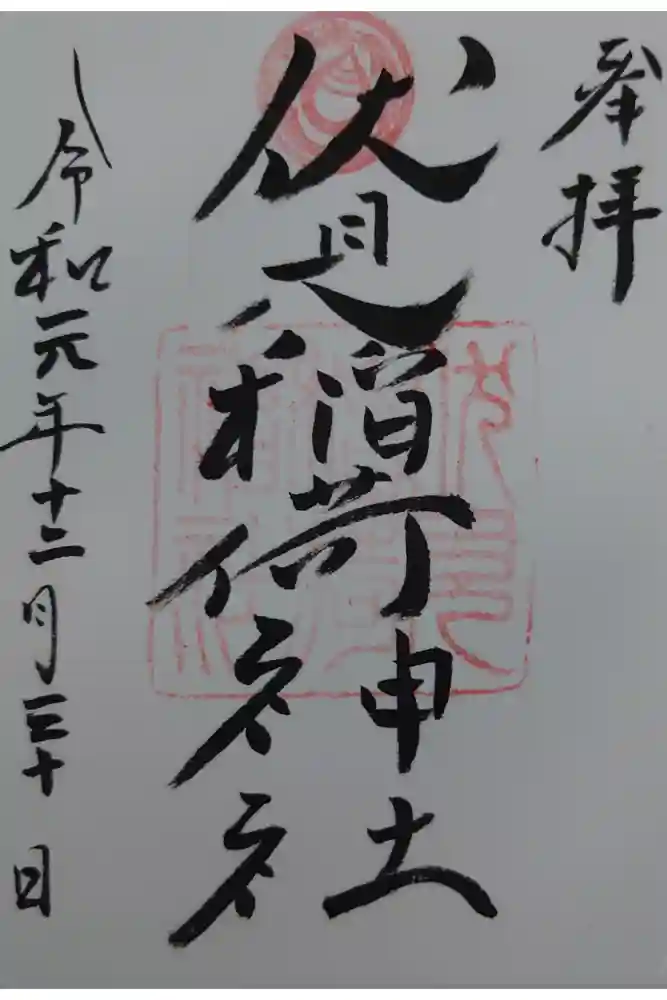 奉拝
伏見稲荷神社
令和元年十二月三十日